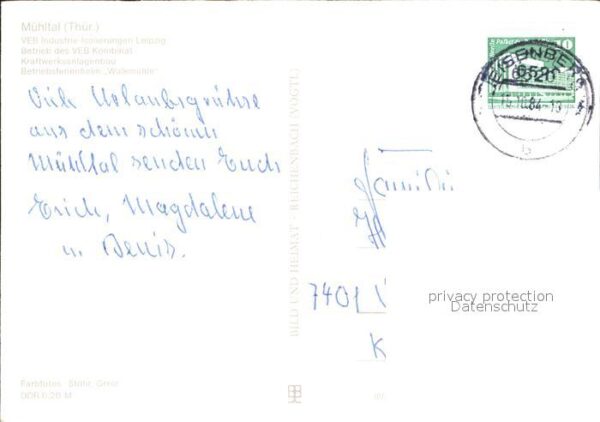 Mühltal (Thür.)
VEB Industrie-Isolierungen Leipzig
Betrieb des VEB Kombinat
Kraftwerksanlagenbau
Betriebsferienheim „Walkmühle“
Viele Urlaubsgrüße
aus dem schönen
Mühltal senden Euch
Erich, Magdalene
u. Denis.
Farbfotos: Stöhr, Greiz
DDR 0,20 M
BILD UND HEIMAT · REICHENBACH (VOGTL)
EISENBERG
6520
15.10.84-15
b
10
Familie
7401
K
privacy protection
Datenschutz